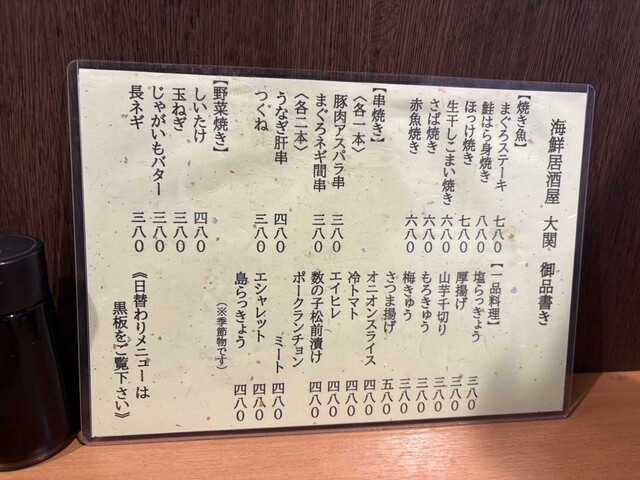 海鮮居酒屋 大関 御品書き
【焼き魚】
まぐろステーキ 七八〇
鮭はら身焼き 八八〇
ほっけ焼き 七八〇
生干しこまい焼き 六八〇
さば焼き 六八〇
赤魚焼き 六八〇
【串焼き】
〈各一本〉
豚肉アスパラ串 三八〇
まぐろネギ間串 三八〇
〈各二本〉
うなぎ肝串 四八〇
つくね 三八〇
【野菜焼き】
しいたけ 四八〇
玉ねぎ 三八〇
じゃがいもバター 三八〇
長ネギ 三八〇
【一品料理】
塩らっきょう 三八〇
厚揚げ 三八〇
山芋千切り 三八〇
もろきゅう 三八〇
梅きゅう 三八〇
さつま揚げ 五八〇
オニオンスライス 四八〇
冷トマト 四八〇
エイヒレ 四八〇
数の子松前漬け 四八〇
ポークランチョン
ミート 四八〇
エシャレット 四八〇
島らっきょう 四八〇
(※季節物です)
《日替わりメニューは
黒板をご覧下さい》